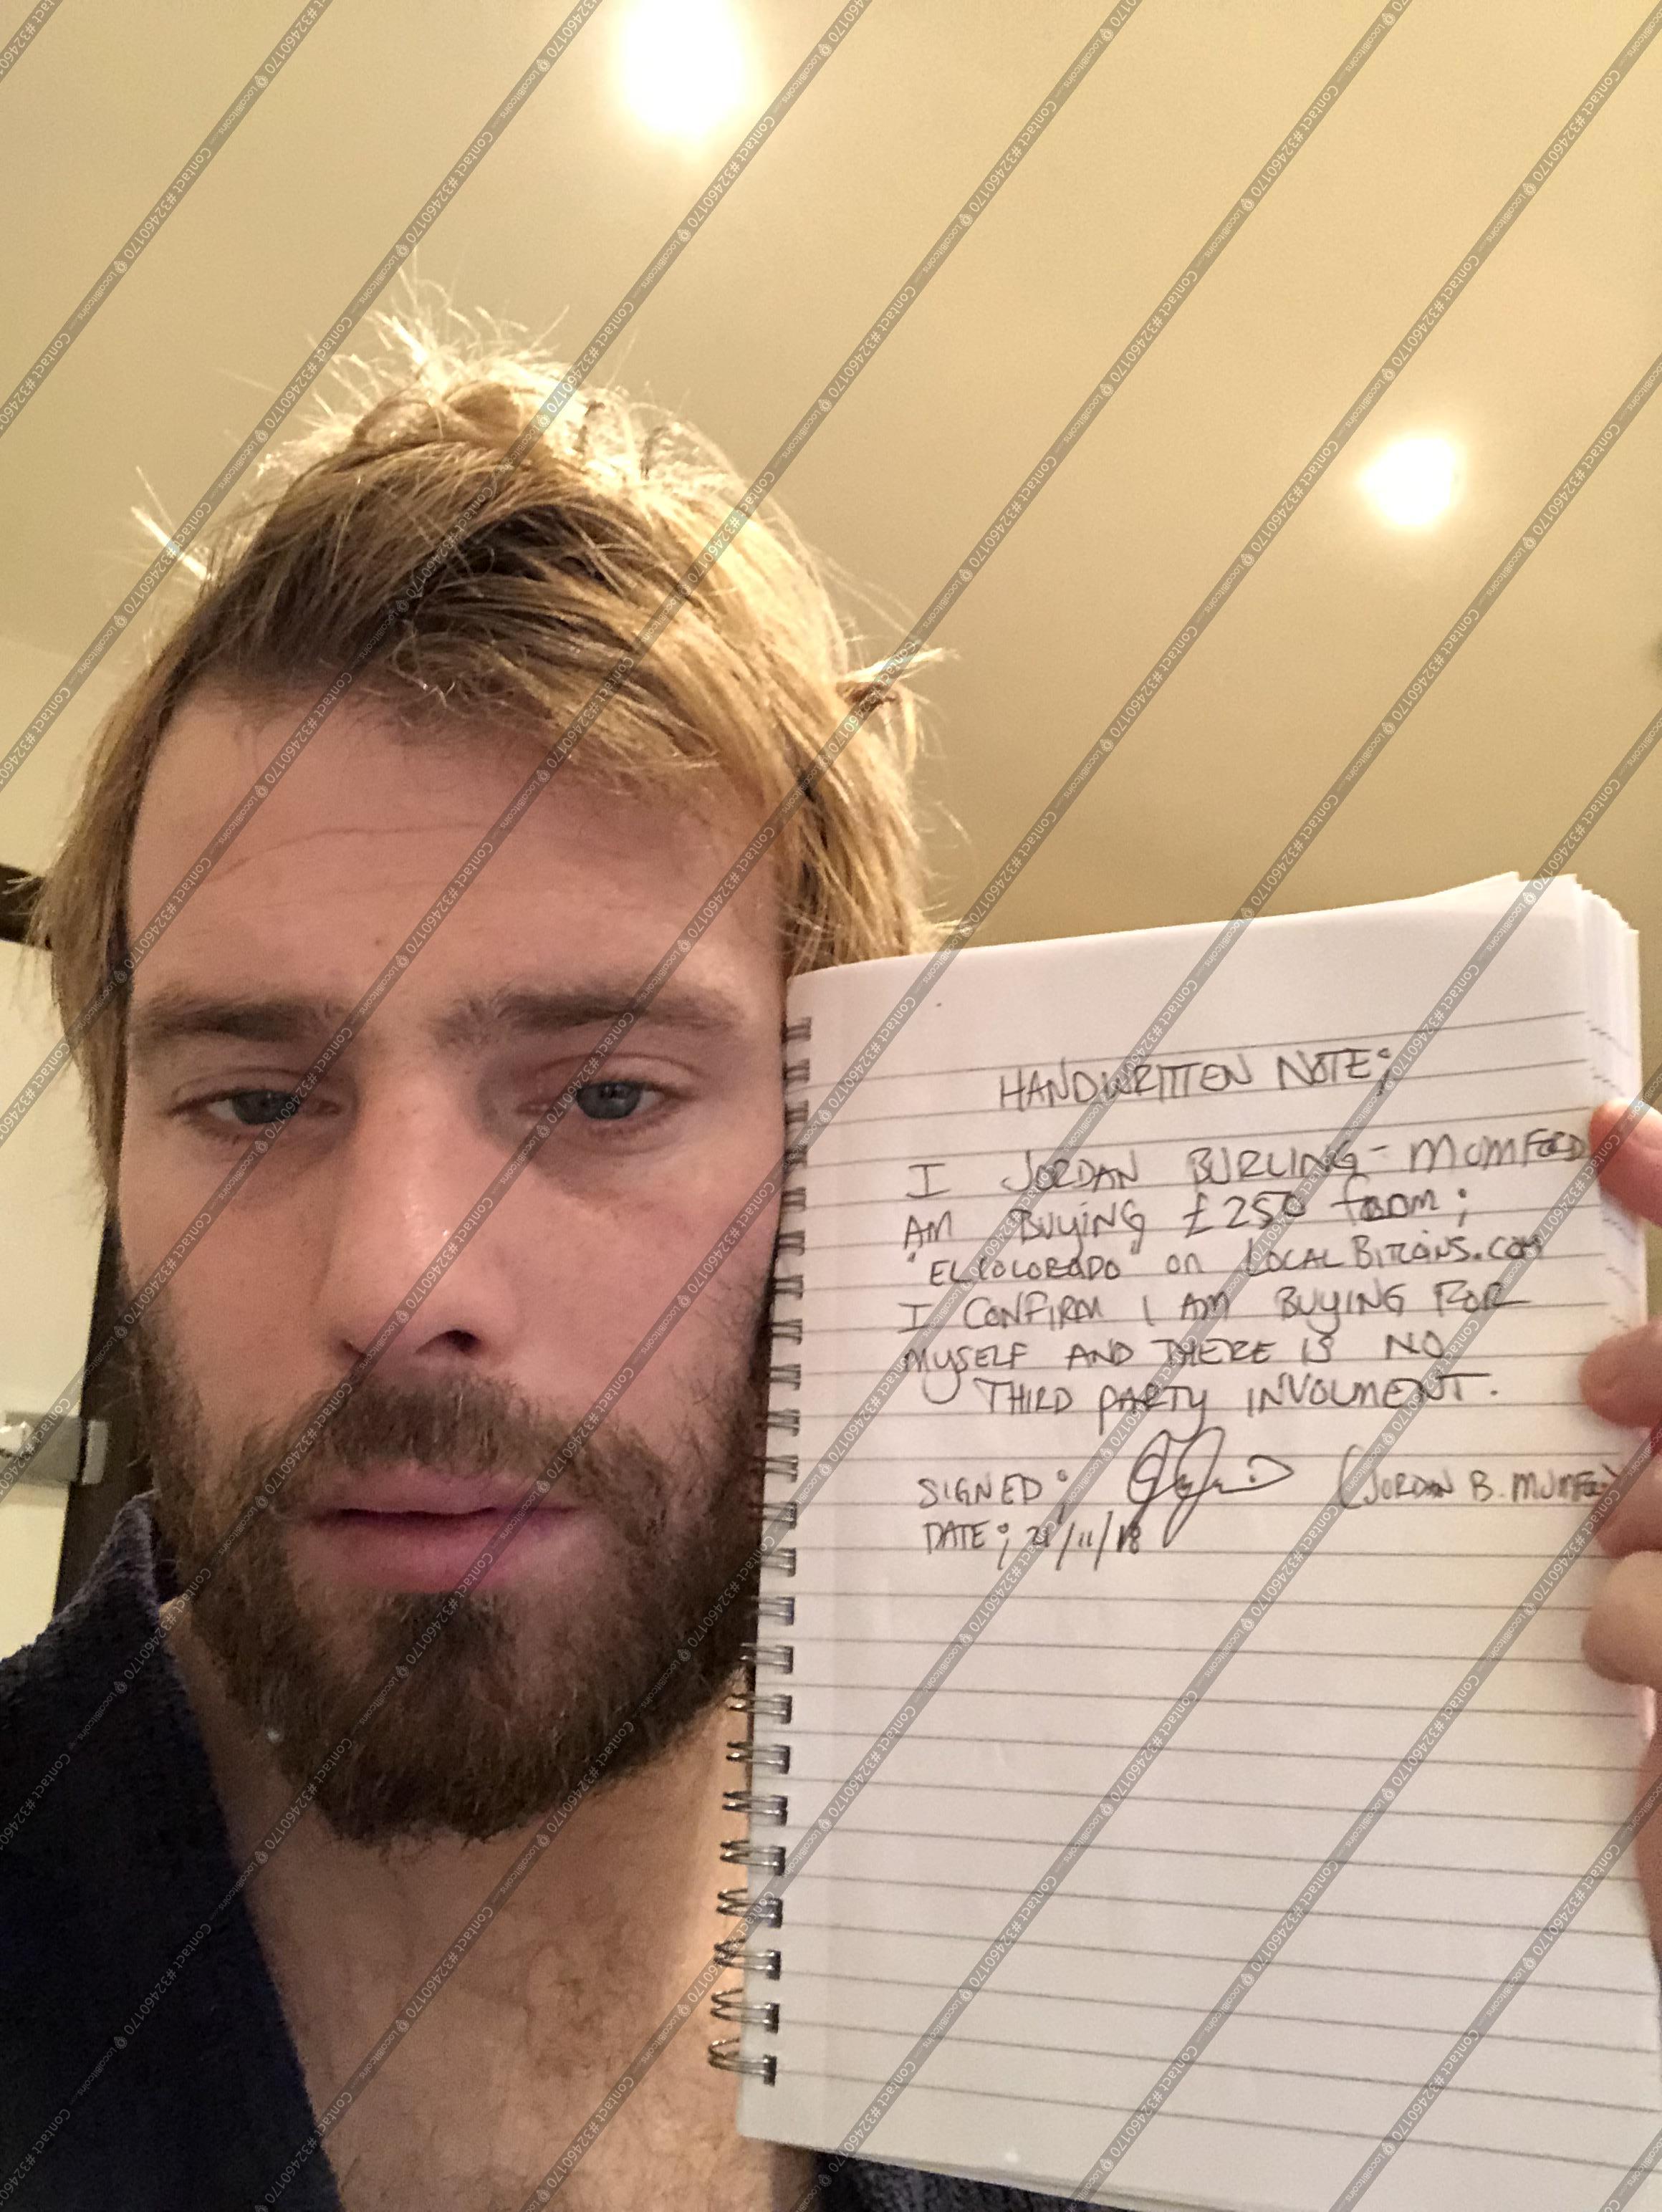 HANDWRITTEN NOTE;
I JORDAN BURLING-MUMFORD
AM BUYING £250 from;
"ELCOLORADO" on LOCALBITCOINS.COM
I CONFIRM I AM BUYING FOR
MYSELF AND THERE IS NO
THIRD PARTY INVOLMENT.
SIGNED; (JORDAN B. MUMFORD)
DATE; 21/11/18
Contact #32460170 LocalBitcoins